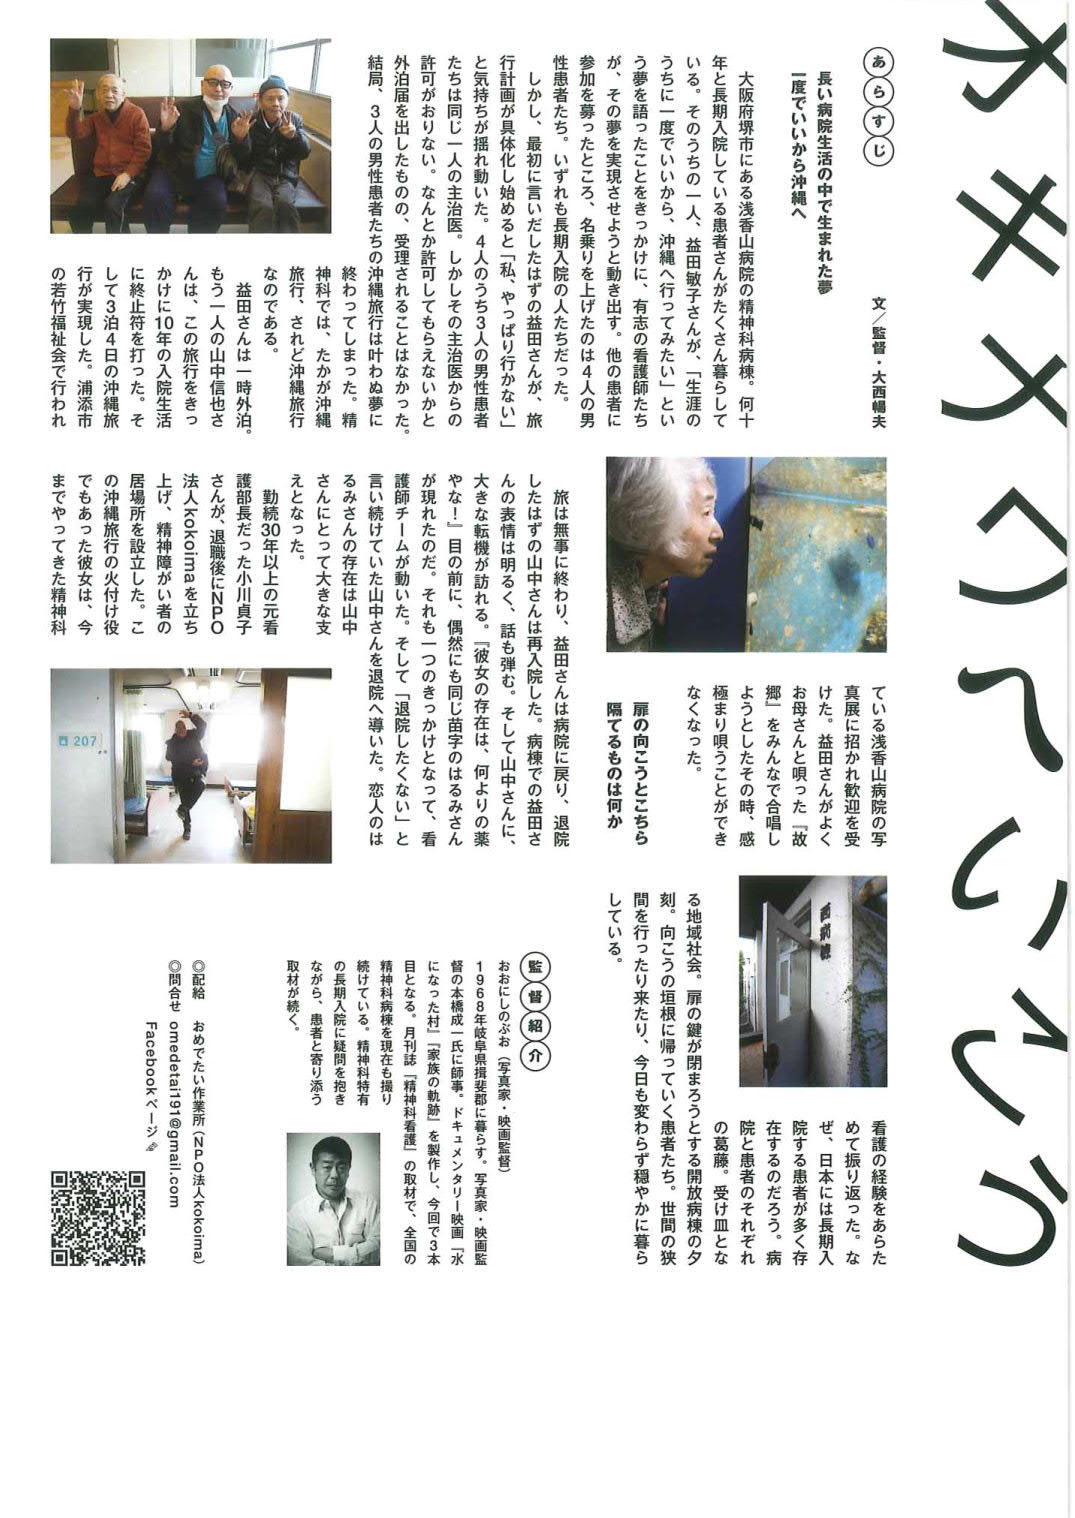 オキナワへいこう
あらすじ
文／監督・大西暢夫
長い病院生活の中で生まれた夢
一度でいいから沖縄へ
大阪府堺市にある浅香山病院の精神科病棟。何十
年と長期入院している患者さんがたくさん暮らして
いる。そのうちの一人、益田敏子さんが、「生涯の
うちに一度でいいから、沖縄へ行ってみたい」とい
う夢を語ったことをきっかけに、有志の看護師たち
が、その夢を実現させようと動き出す。他の患者に
参加を募ったところ、名乗りを上げたのは4人の男
性患者たち。いずれも長期入院の人たちだった。
しかし、最初に言いだしたはずの益田さんが、旅
行計画が具体化し始めると「私、やっぱり行かない」
と気持ちが揺れ動いた。4人のうち3人の男性患者
たちは同じ一人の主治医。しかしその主治医からの
許可がおりない。なんとか許可してもらえないかと
外泊届を出したものの、受理されることはなかった。
結局、3人の男性患者たちの沖縄旅行は叶わぬ夢に
終わってしまった。精
神科では、たかが沖縄
旅行、されど沖縄旅行
なのである。
益田さんは一時外泊。
もう一人の山中信也さ
んは、この旅行をきっ
かけに10年の入院生活
に終止符を打った。そ
して3泊4日の沖縄旅
行が実現した。浦添市
の若竹福祉会で行われ
ている浅香山病院の写
真展に招かれ歓迎を受
けた。益田さんがよく
お母さんと唄った『故
郷』をみんなで合唱し
ようとしたその時、感
極まり唄うことができ
なくなった。
扉の向こうとこちら
隔てるものは何か
旅は無事に終わり、益田さんは病院に戻り、退院
したはずの山中さんは再入院した。病棟での益田さ
んの表情は明るく、話も弾む。そして山中さんに、
大きな転機が訪れる。『彼女の存在は、何よりの薬
やな！』目の前に、偶然にも同じ苗字のはるみさん
が現れたのだ。それも一つのきっかけとなって、看
護師チームが動いた。そして「退院したくない」と
言い続けていた山中さんを退院へ導いた。恋人のは
るみさんの存在は山中
さんにとって大きな支
えとなった。
勤続30年以上の元看
護部長だった小川貞子
さんが、退職後にNPO
法人kokoimaを立ち
上げ、精神障がい者の
居場所を設立した。こ
の沖縄旅行の火付け役
でもあった彼女は、今
までやってきた精神科
看護の経験をあらた
めて振り返った。な
ぜ、日本には長期入
院する患者が多く存
在するのだろう。病
院と患者のそれぞれ
の葛藤。受け皿とな
る地域社会。扉の鍵が閉まろうとする開放病棟の夕
刻。向こうの垣根に帰っていく患者たち。世間の狭
間を行ったり来たり、今日も変わらず穏やかに暮ら
している。
207
西病棟
監督紹介
おおにしのぶお（写真家・映画監督）
1968年岐阜県揖斐郡に暮らす。写真家・映画監
督の本橋成一氏に師事。ドキュメンタリー映画『水
になった村』『家族の軌跡』を製作し、今回で3本
目となる。月刊誌『精神科看護』の取材で、全国の
精神科病棟を現在も撮り
続けている。精神科特有
の長期入院に疑問を抱き
ながら、患者と寄り添う
取材が続く。
◎配給　おめでたい作業所（NPO法人kokoima）
◎問合せ　omedetai191@gmail.com
Facebookページ